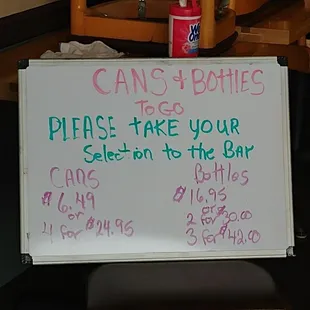 CANS & BOTTlES
To GO
PLEASE tAKE YOUR
Selection to the BAr
CANS
$6.49
or
4 for $24.95
Bottles
$16.95
or
2 for $30.00
3 for $42.00